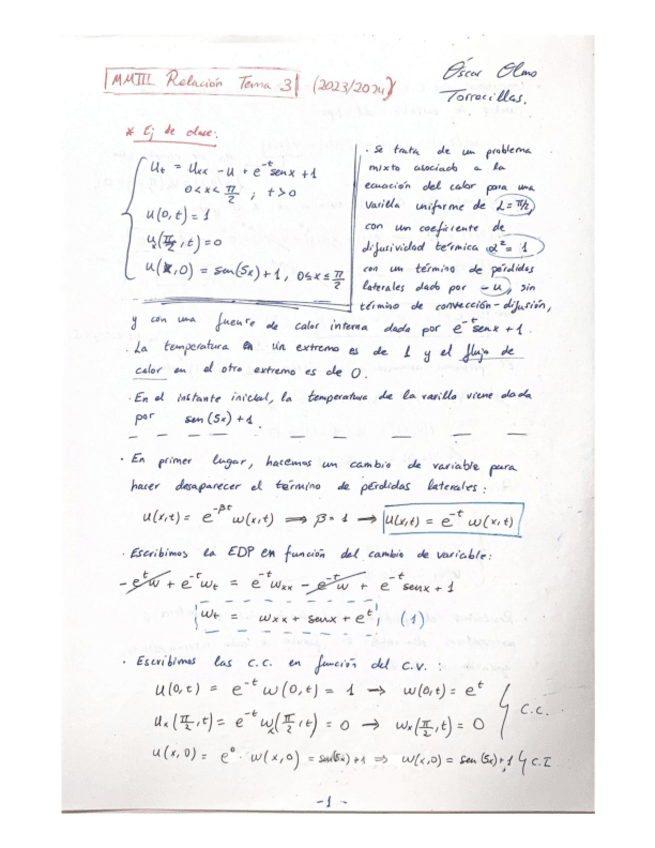 MMIII Relación Tema 3 (2023/2024)
Óscar Olmo
Torrecillas.
* Ej de clase:
u_t = u_xx - u + e^-t senx + 1
0 < x < π/2 ; t > 0
u(0,t) = 1
u_x(π/2,t) = 0
u(x,0) = sen(5x) + 1, 0 ≤ x ≤ π/2
· Se trata de un problema
mixto asociado a la
ecuación del calor para una
varilla uniforme de L = π/2,
con un coeficiente de
difusividad térmica α² = 1
con un término de pérdidas
laterales dado por -u, sin
término de convección-difusión,
y con una fuente de calor interna dada por e^-t senx + 1.
· La temperatura en un extremo es de 1 y el flujo de
calor en el otro extremo es de 0.
· En el instante inicial, la temperatura de la varilla viene dada
por sen(5x) + 1.
· En primer lugar, hacemos un cambio de variable para
hacer desaparecer el término de pérdidas laterales:
u(x,t) = e^-βt w(x,t) ⟹ β = 1 → u(x,t) = e^-t w(x,t)
· Escribimos la EDP en función del cambio de variable:
-e^-t w + e^-t w_t = e^-t w_xx - e^-t w + e^-t senx + 1
w_t = w_xx + senx + e^t (1)
· Escribimos las C.C. en función del C.V. :
u(0,t) = e^-t w(0,t) = 1 → w(0,t) = e^t
u_x(π/2,t) = e^-t w_x(π/2,t) = 0 → w_x(π/2,t) = 0 } C.C.
u(x,0) = e^0 · w(x,0) = sen(5x) + 1 ⟹ w(x,0) = sen(5x) + 1 } C.I
-1-